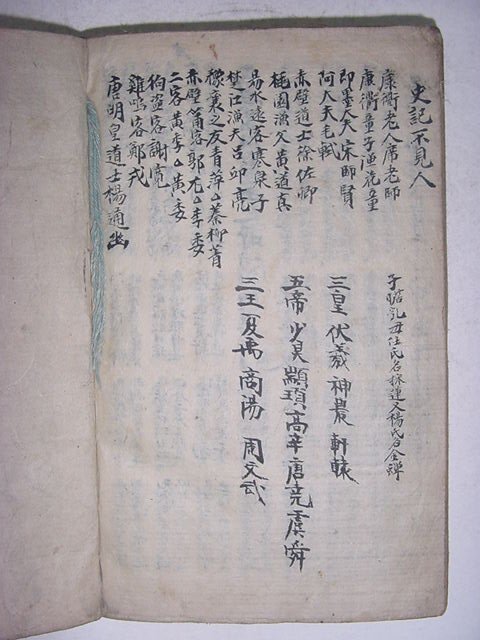 史記不見人
康衢老人席老師
康衢童子逆荒童
即墨大夫宋師賢
阿大夫毛軾
赤壁道士徐佐卿
桃園漁父黃道真
易水遠客寒泉子
楚江漁夫呂卬亮
稼裏之友青萍 蓁柳菁
赤壁簫客郭尤 李委
二客黃李 黃委
伯盜客謝寬
雞鳴客鄭戎
唐明皇道士楊通幽
子瞻乳母任氏名採蓮又楊氏名金蟬
三皇 伏羲 神農 軒轅
五帝 少昊 顓頊 高辛 唐堯 虞舜
三王 夏禹 商湯 周文武